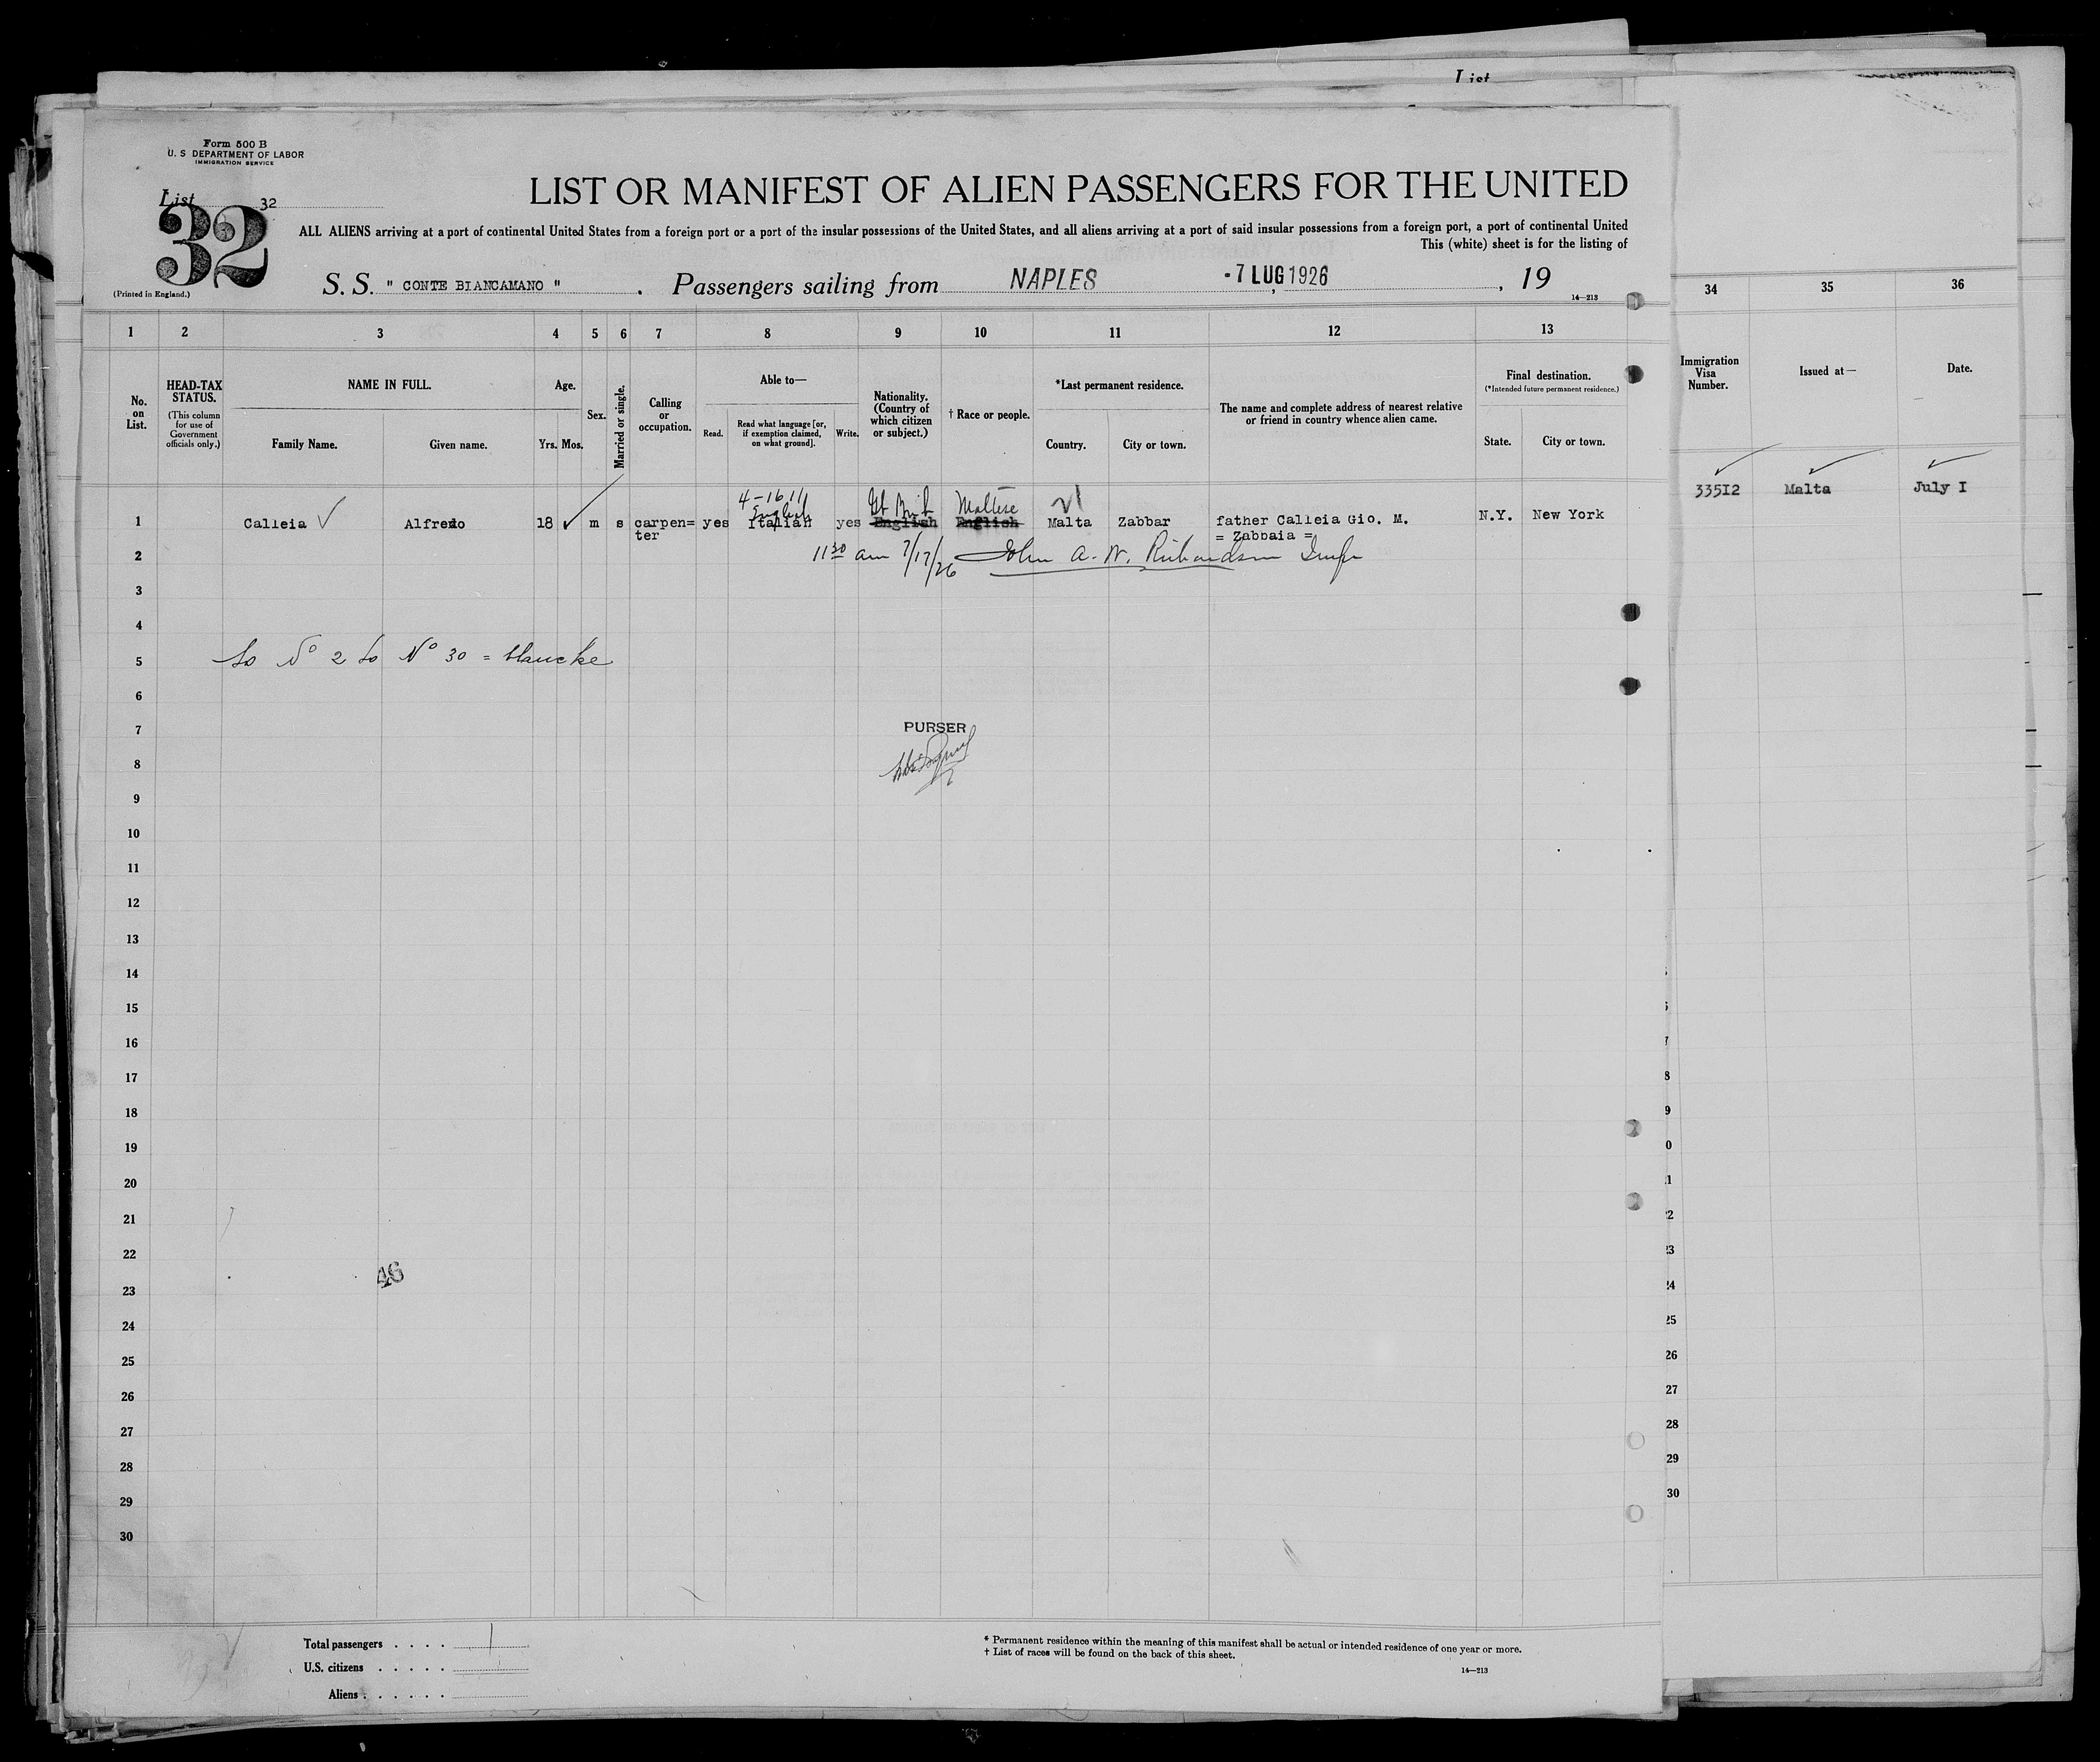 List
Form 500 B
U. S DEPARTMENT OF LABOR
IMMIGRATION SERVICE
List 32
32
(Printed in England.)
LIST OR MANIFEST OF ALIEN PASSENGERS FOR THE UNITED
ALL ALIENS arriving at a port of continental United States from a foreign port or a port of the insular possessions of the United States, and all aliens arriving at a port of said insular possessions from a foreign port, a port of continental United
This (white) sheet is for the listing of
S. S. " CONTE BIANCAMANO " . Passengers sailing from NAPLES -7 LUG 1926 , 19
14—213
1 2 3 4 5 6 7 8 9 10 11 12 13
No. on List.
HEAD-TAX STATUS.
(This column for use of Government officials only.)
NAME IN FULL.
Family Name. Given name.
Age.
Yrs. Mos.
Sex.
Married or single.
Calling or occupation.
Able to—
Read.
Read what language [or, if exemption claimed, on what ground].
Write.
Nationality. (Country of which citizen or subject.)
† Race or people.
*Last permanent residence.
Country. City or town.
The name and complete address of nearest relative or friend in country whence alien came.
Final destination.
(*Intended future permanent residence.)
State. City or town.
34 35 36
Immigration Visa Number.
Issued at—
Date.
33512 Malta July I
4-1611
English Gt Brit Maltese
1 Calleia Alfredo 18 m s carpen= yes Italian yes English English Malta Zabbar father Calleia Gio. M. N.Y. New York
ter = Zabbaia =
2 11 30 am 7/17/26 John A. W. Richardson Insp
3
4
5 to No 2 to No 30 = blancke
6
7 PURSER
8
9
10
11
12
13
14
15
16
17
18
19
20
21
22
46
23
24
25
26
27
28
29
30
25
26
27
28
29
30
Total passengers . . . . 1
U.S. citizens . . . . .
Aliens . . . . . .
* Permanent residence within the meaning of this manifest shall be actual or intended residence of one year or more.
† List of races will be found on the back of this sheet.
14—213